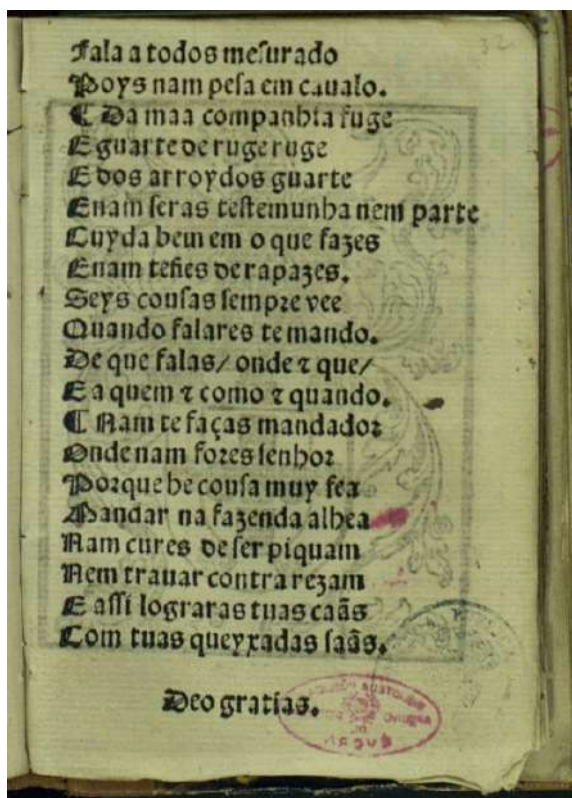 32
Fala a todos meſurado
Poys nam peſa em caualo.
¶ Da maa companhia fuge
E guarte de ruge ruge
E dos arroydos guarte
E nam ſeras teſtemunha nem parte
Cuyda bem em o que fazes
E nam tefies de rapazes.
Seys couſas ſempre vee
Quando falares te mando.
De que falas/ onde ⁊ que/
E a quem ⁊ como ⁊ quando.
¶ Nam te faças mandador
Onde nam fores ſenhor
Porque he couſa muy fea
Mandar na fazenda alhea
Nam cures de ſer piquam
Nem trauar contra rezam
E aſſi lograras tuas caãs
Com tuas queyxadas ſaãs.
Deo gratias.